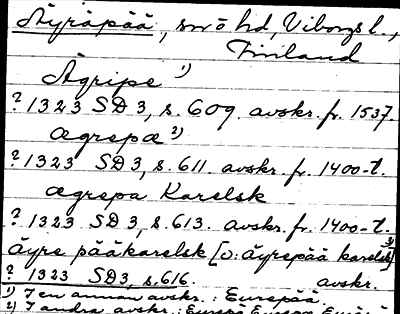 Äyräpää, sn o hd, Viborgs l.,
Finland
Ägripe 1)
? 1323 SD 3, s. 609. avskr. fr. 1537.
ægrepæ 2)
? 1323 SD 3, s. 611. avskr. fr. 1400-t.
ægrepa Karelsk
? 1323 SD 3, s. 613. avskr. fr. 1400-t.
äyre pääkarelsk [ɔ: äyrepää karelsk] 3)
? 1323 SD 3, s. 616. avskr.
1) I en annan avskr.: Eurepää.
2) I andra avskr.: Europä